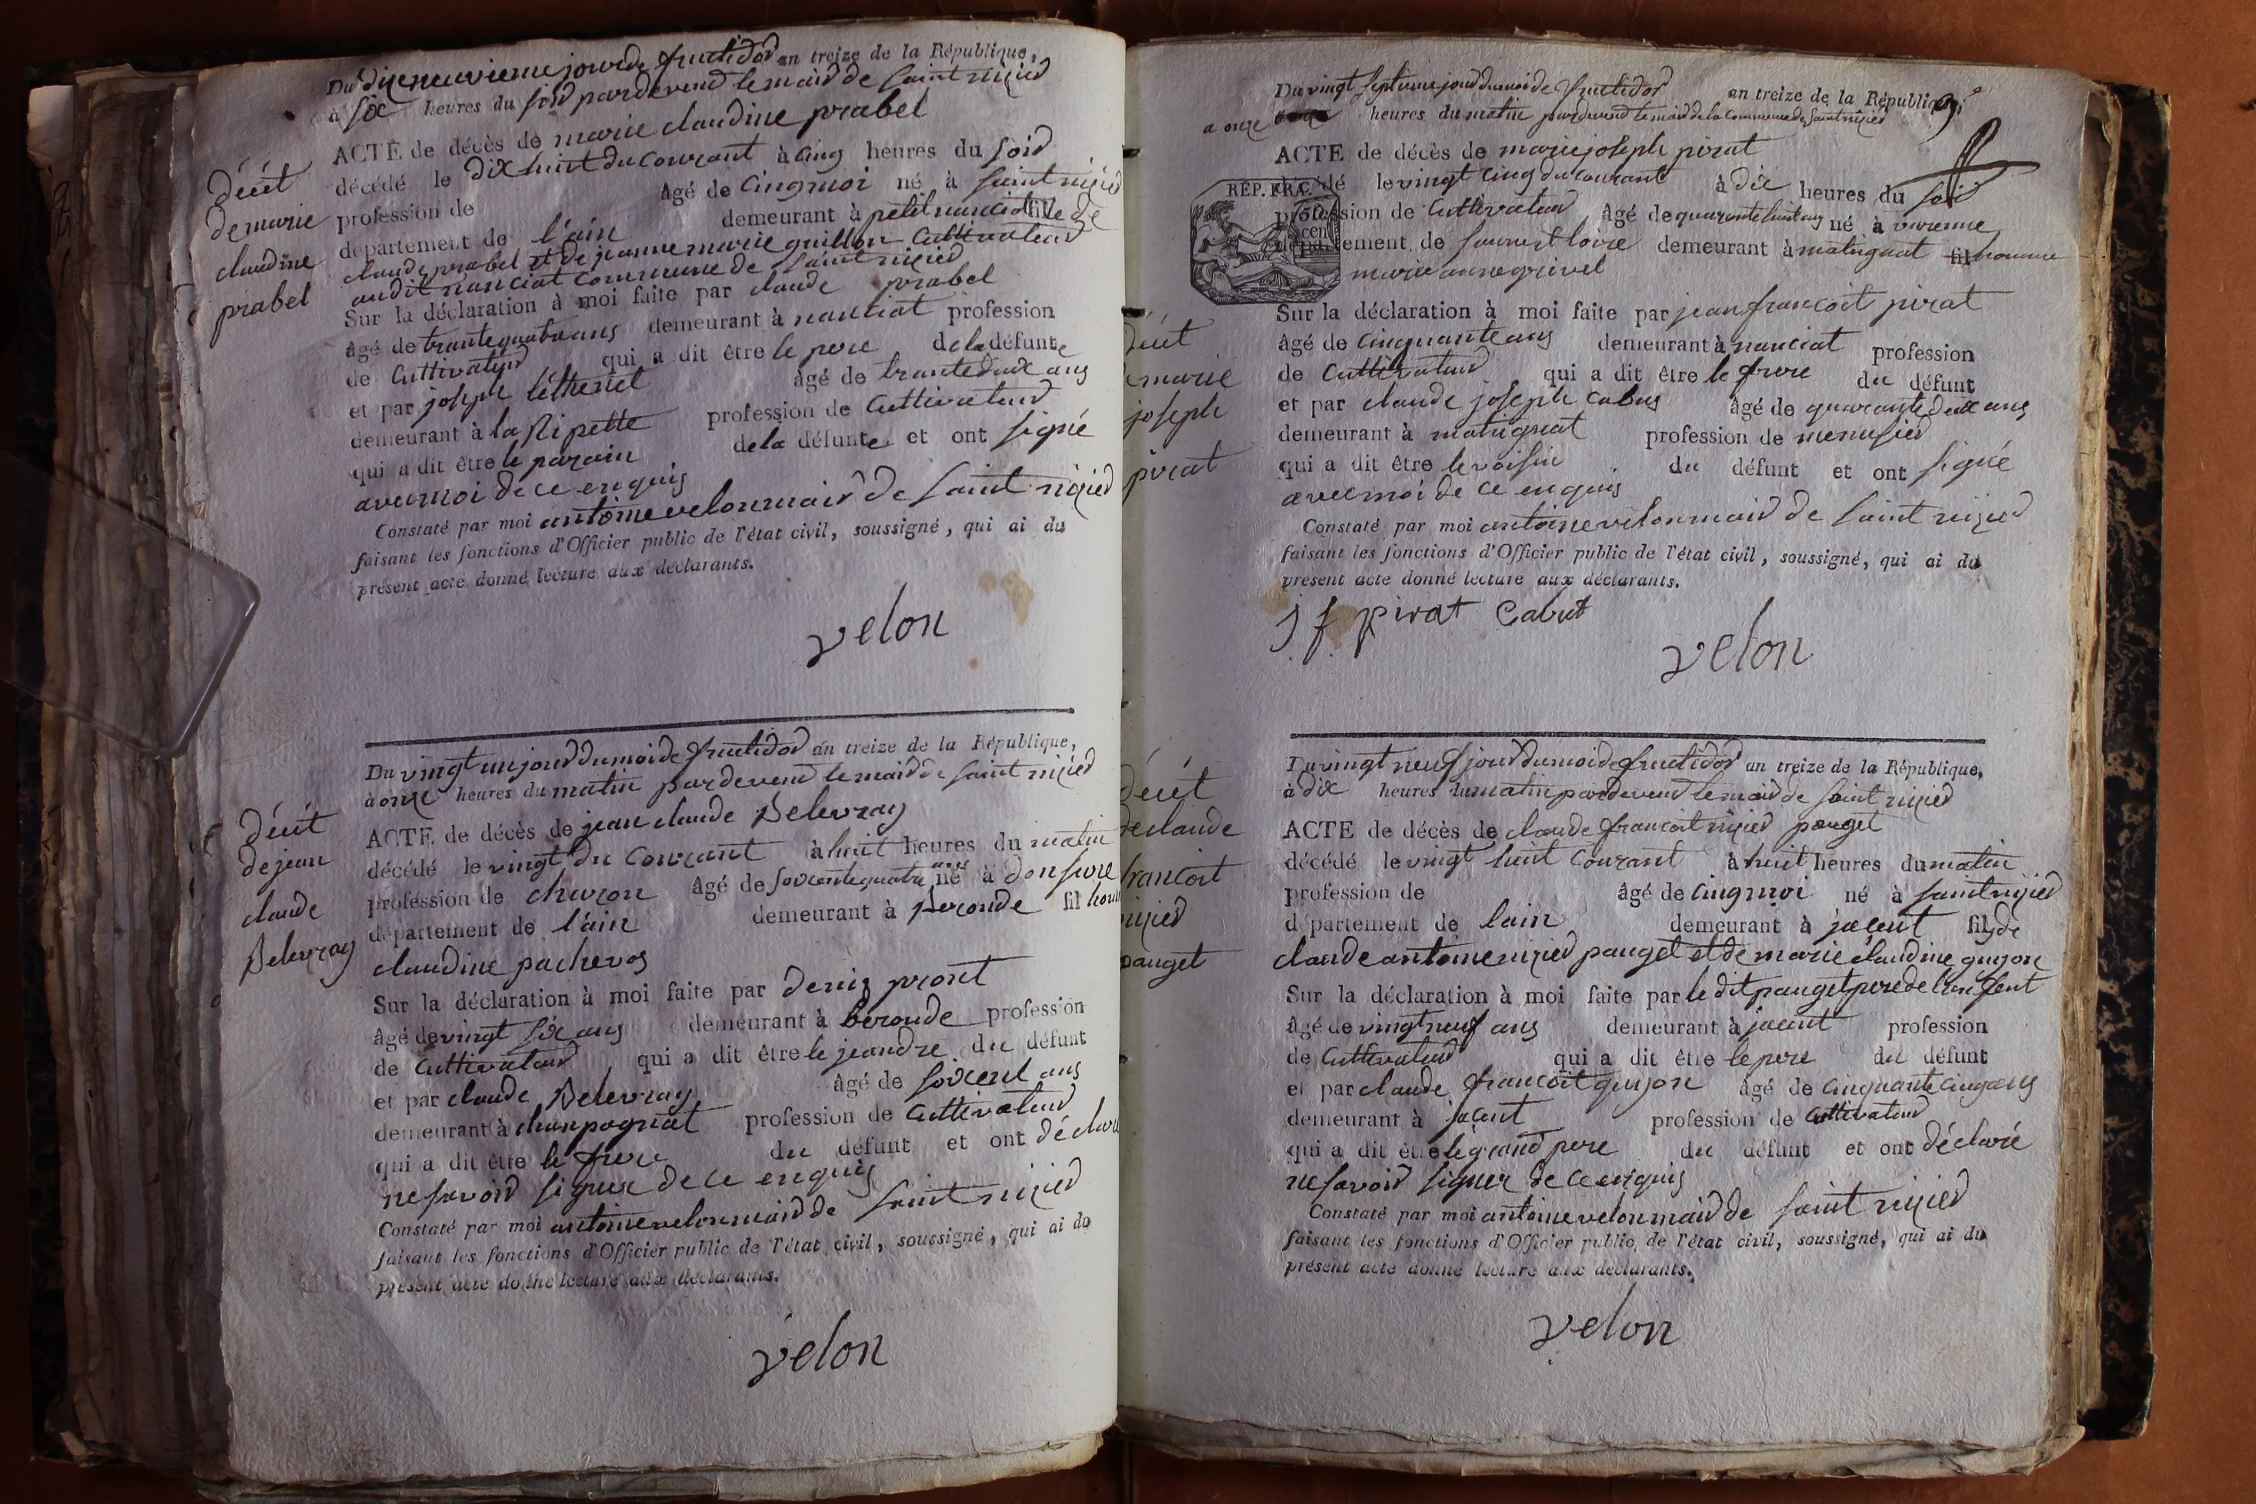 Du dixneuvieme jour de fructidor an treize de la République,
à six heures du soir pardevend le maird de Saint nizied
ACTE de décès de marie claudine prabel
décédé le dix huit du courant à cinq heures du soir
profession de âgé de cinq moi né à Saint nizied
département de l'ain demeurant à petit nanciat fille de
claude prabel et de jeanne marie guillon cultivateur
audit nanciat commune de Saint nizied
Sur la déclaration à moi faite par claude prabel
âgé de trante quatre ans demeurant à nanciat profession
de Cultivateur qui a dit être le pere de la défunte
et par joseph léthenet âgé de trante deux ans
demeurant à la Ripette profession de Cultivateur
qui a dit être le parain de la défunte et ont signé
avec moi de ce enquis
Constaté par moi antoine velon maird de Saint nizied
faisant les fonctions d'Officier public de l'état civil, soussigné, qui ai du
présent acte donné lecture aux déclarants.
velon
décét
de marie
claudine
prabel
Du vingt un jour du moi de fructidor an treize de la République,
à onze heures du matin pardevend le maird de Saint nizied
ACTE de décès de jean claude Belevray
décédé le vingt du Courant à huit heures du matin
profession de charon âgé de soixante quatre ans né à donsure
département de l'ain demeurant à Beronde fil
claudine pachevos
Sur la déclaration à moi faite par deniz pront
âgé de vingt six ans demeurant à beronde profession
de Cultivateur qui a dit être le jeandre du défunt
et par claude Belevray âgé de soixent ans
demeurant à chanpagnat profession de Cultivateur
qui a dit être le frere du défunt et ont déclaré
ne savoir signer de ce enquis
Constaté par moi antoine velon maird de Saint nizied
faisant les fonctions d'Officier public de l'état civil, soussigné, qui ai du
présent acte donné lecture aux déclarants.
velon
décét
de jean
claude
Belevray
Du vingt septieme jour du moi de fructidor an treize de la République
a onze heures du matin pardevend le maird de la Commune de Saint nizied
ACTE de décès de marie joseph pirat
décédé le vingt cinq du courant à dix heures du soir
RÉP. FRA.
profession de Cultivateur âgé de quarante huit ans né à varenne
département de Saone et loire demeurant à matignat fil
marie anne grivel
Sur la déclaration à moi faite par jean francoit pirat
âgé de cinquante ans demeurant à nanciat profession
de Cultivateur qui a dit être le frere du défunt
et par claude joseph Cabus âgé de quarante deux ans
demeurant à matignat profession de menusier
qui a dit être le voisin du défunt et ont signé
avec moi de ce enquis
Constaté par moi antoine velon maird de Saint nizied
faisant les fonctions d'Officier public de l'état civil, soussigné, qui ai du
présent acte donné lecture aux déclarants.
j f pirat Cabut
velon
décét
de marie
joseph
pirat
Du vingt neuf jour du moi de fructidor an treize de la République,
à dix heures du matin pardevend le maird de Saint nizied
ACTE de décès de claude francoit nizied pauget
décédé le vingt huit Courant à huit heures du matin
profession de âgé de cinq moi né à Saint nizied
département de lain demeurant à jacent fil de
claude antoine nizied pauget et de marie claudine guyon
Sur la déclaration à moi faite par le dit pauget pere de l'enfent
âgé de vingt neuf ans demeurant à jacent profession
de Cultivateur qui a dit être le pere du défunt
et par claude francoit guyon âgé de cinquante cinq ans
demeurant à jacent profession de Cultivateur
qui a dit être le grand pere du défunt et ont déclaré
ne savoir signer de ce enquis
Constaté par moi antoine velon maird de Saint nizied
faisant les fonctions d'Officier public de l'état civil, soussigné, qui ai du
présent acte donné lecture aux déclarants.
velon
décét
de claude
francoit
nizied
pauget